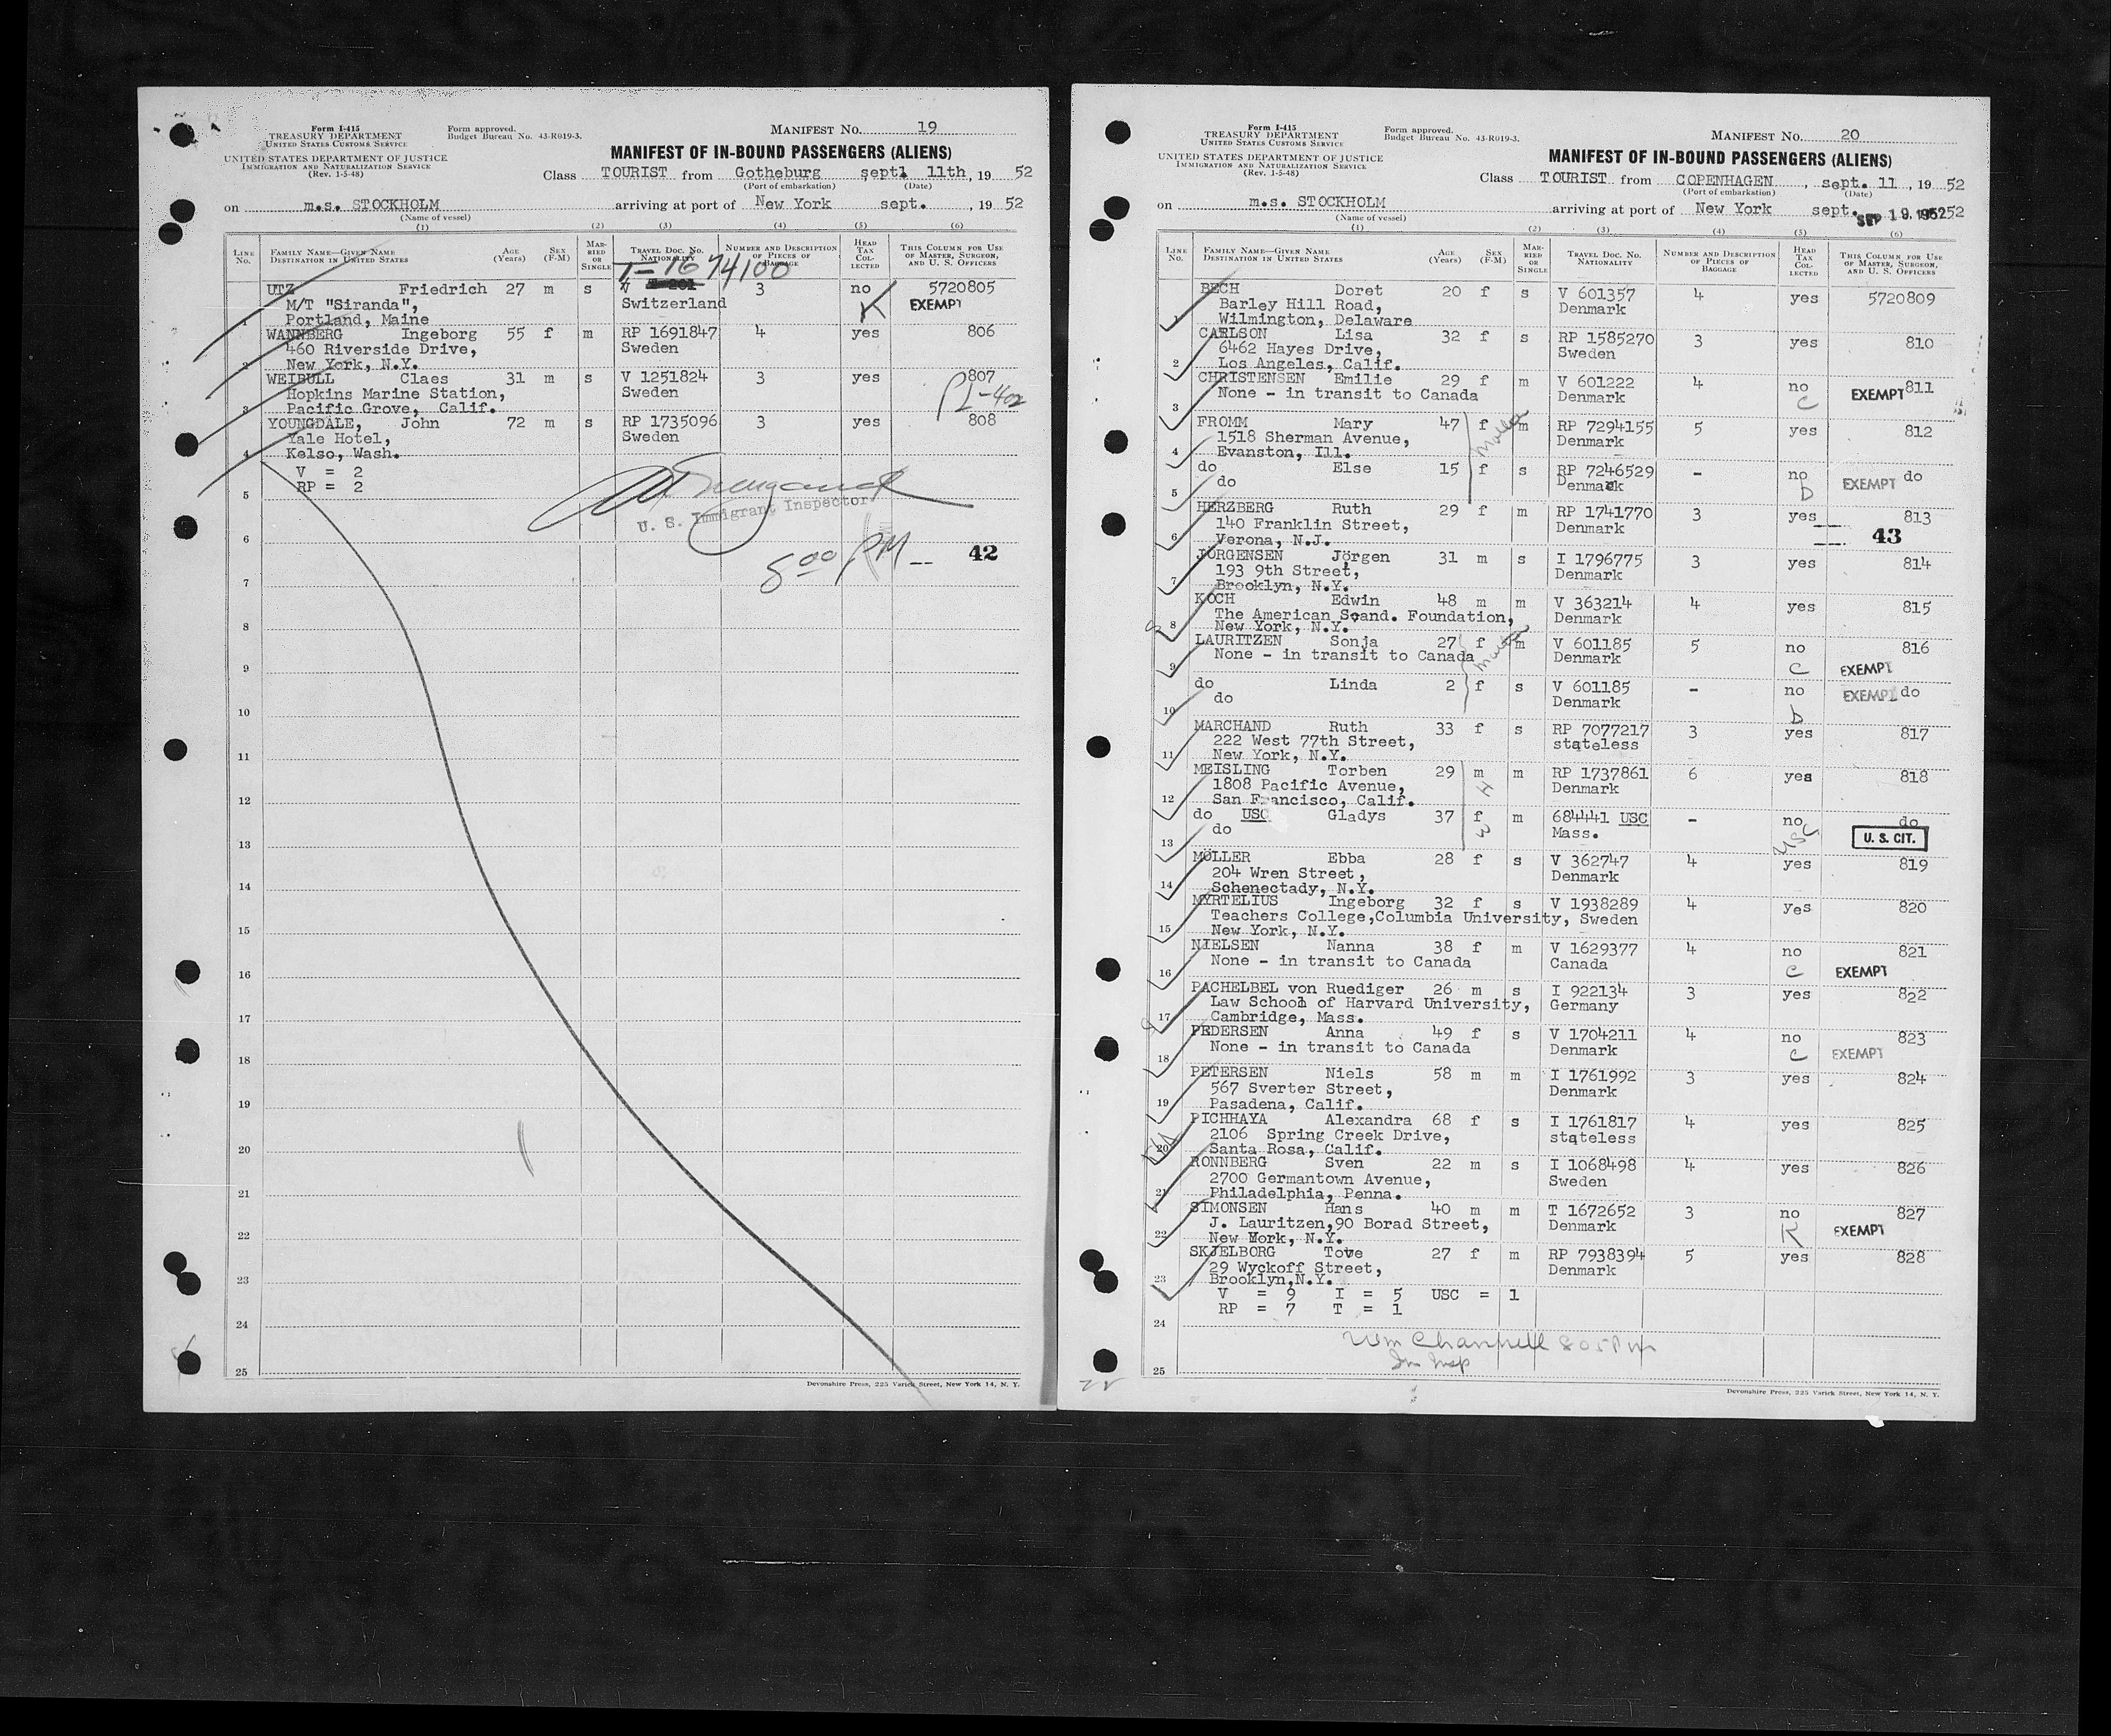 Form I-415
TREASURY DEPARTMENT
UNITED STATES CUSTOMS SERVICE
UNITED STATES DEPARTMENT OF JUSTICE
IMMIGRATION AND NATURALIZATION SERVICE
(Rev. 1-5-48)
Form approved.
Budget Bureau No. 43-R019-3.
MANIFEST No. 19
MANIFEST OF IN-BOUND PASSENGERS (ALIENS)
Class TOURIST from Gotheburg sept1 11th, 19 52
(Port of embarkation) (Date)
on m.s. STOCKHOLM arriving at port of New York sept. , 19 52
(Name of vessel)
(1) (2) (3) (4) (5) (6)
LINE No. FAMILY NAME—GIVEN NAME DESTINATION IN UNITED STATES AGE (Years) SEX (F-M) MARRIED OR SINGLE TRAVEL DOC. NO. NATIONALITY NUMBER AND DESCRIPTION OF PIECES OF BAGGAGE HEAD TAX COLLECTED THIS COLUMN FOR USE OF MASTER, SURGEON, AND U. S. OFFICERS
T-1674100
UTZ Friedrich 27 m s V 3 no 5720805
M/T "Siranda", Switzerland K EXEMPT
1 Portland, Maine
WANNBERG Ingeborg 55 f m RP 1691847 4 yes 806
460 Riverside Drive, Sweden
2 New York, N.Y.
WEIBULL Claes 31 m s V 1251824 3 yes 807
Hopkins Marine Station, Sweden PL-402
3 Pacific Grove, Calif.
YOUNGDALE, John 72 m s RP 1735096 3 yes 808
Yale Hotel, Sweden
4 Kelso, Wash.
V = 2
5 RP = 2
U. S. Immigrant Inspector
6
8 00 PM 42
7
8
9
10
11
12
13
14
15
16
17
18
19
20
21
22
23
24
25
Devonshire Press, 225 Varick Street, New York 14, N. Y.
Form I-415
TREASURY DEPARTMENT
UNITED STATES CUSTOMS SERVICE
UNITED STATES DEPARTMENT OF JUSTICE
IMMIGRATION AND NATURALIZATION SERVICE
(Rev. 1-5-48)
Form approved.
Budget Bureau No. 43-R019-3.
MANIFEST No. 20
MANIFEST OF IN-BOUND PASSENGERS (ALIENS)
Class TOURIST from COPENHAGEN , sept. 11 , 19 52
(Port of embarkation) (Date)
on m.s. STOCKHOLM arriving at port of New York sept. SEP 19 1952 52
(Name of vessel)
(1) (2) (3) (4) (5) (6)
LINE No. FAMILY NAME—GIVEN NAME DESTINATION IN UNITED STATES AGE (Years) SEX (F-M) MARRIED OR SINGLE TRAVEL DOC. NO. NATIONALITY NUMBER AND DESCRIPTION OF PIECES OF BAGGAGE HEAD TAX COLLECTED THIS COLUMN FOR USE OF MASTER, SURGEON, AND U. S. OFFICERS
BECH Doret 20 f s V 601357 4 yes 5720809
Barley Hill Road, Denmark
1 Wilmington, Delaware
CARLSON Lisa 32 f s RP 1585270 3 yes 810
6462 Hayes Drive, Sweden
2 Los Angeles, Calif.
CHRISTENSEN Emilie 29 f m V 601222 4 no EXEMPT 811
None - in transit to Canada Denmark C
3
FROMM Mary 47 f m RP 7294155 5 yes 812
1518 Sherman Avenue, Denmark
4 Evanston, Ill.
do Else 15 f s RP 7246529 - no EXEMPT do
do Denmark D
5
HERZBERG Ruth 29 f m RP 1741770 3 yes 813
140 Franklin Street, Denmark 43
6 Verona, N.J.
JÖRGENSEN Jörgen 31 m s I 1796775 3 yes 814
193 9th Street, Denmark
7 Brooklyn, N.Y.
KOCH Edwin 48 m m V 363214 4 yes 815
The American Scand. Foundation, Denmark
8 New York, N.Y.
LAURITZEN Sonja 27 f m V 601185 5 no 816
None - in transit to Canada Denmark C EXEMPT
9
do Linda 2 f s V 601185 - no EXEMPT do
do Denmark D
10
MARCHAND Ruth 33 f s RP 7077217 3 yes 817
222 West 77th Street, stateless
11 New York, N.Y.
MEISLING Torben 29 m m RP 1737861 6 yes 818
1808 Pacific Avenue, H Denmark
12 San Francisco, Calif.
do USC Gladys 37 f m 684441 USC - no do
do W Mass. USC U. S. CIT.
13
MÖLLER Ebba 28 f s V 362747 4 yes 819
204 Wren Street, Denmark
14 Schenectady, N.Y.
MYRTELIUS Ingeborg 32 f s V 1938289 4 yes 820
Teachers College,Columbia University, Sweden
15 New York, N.Y.
NIELSEN Nanna 38 f m V 1629377 4 no 821
None - in transit to Canada Canada C EXEMPT
16
PACHELBEL von Ruediger 26 m s I 922134 3 yes 822
Law School of Harvard University, Germany
17 Cambridge, Mass.
PEDERSEN Anna 49 f s V 1704211 4 no 823
None - in transit to Canada Denmark C EXEMPT
18
PETERSEN Niels 58 m m I 1761992 3 yes 824
567 Sverter Street, Denmark
19 Pasadena, Calif.
PICHHAYA Alexandra 68 f s I 1761817 4 yes 825
2106 Spring Creek Drive, stateless
20 Santa Rosa, Calif.
RONNBERG Sven 22 m s I 1068498 4 yes 826
2700 Germantown Avenue, Sweden
21 Philadelphia, Penna.
SIMONSEN Hans 40 m m T 1672652 3 no 827
J. Lauritzen,90 Borad Street, Denmark K EXEMPT
22 New York, N.Y.
SKJELBORG Tove 27 f m RP 7938394 5 yes 828
29 Wyckoff Street, Denmark
23 Brooklyn,N.Y.
V = 9 I = 5 USC = 1
RP = 7 T = 1
24
Wm Channell 805 PM
Im Insp
25
Devonshire Press, 225 Varick Street, New York 14, N. Y.